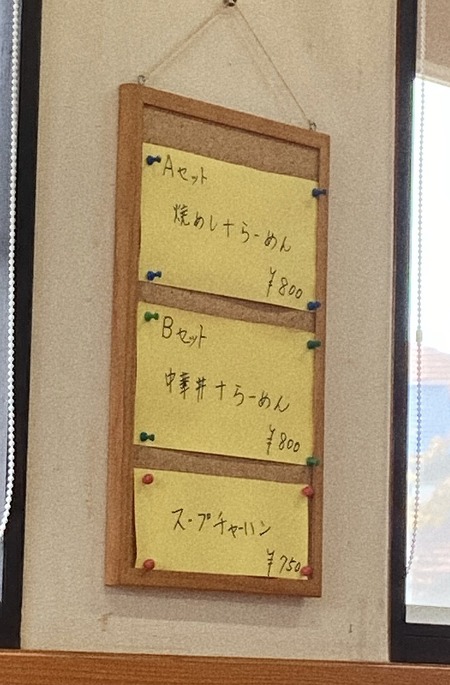 Aセット
焼めし+らーめん
¥800
Bセット
中華丼+らーめん
¥800
スープチャーハン
¥750